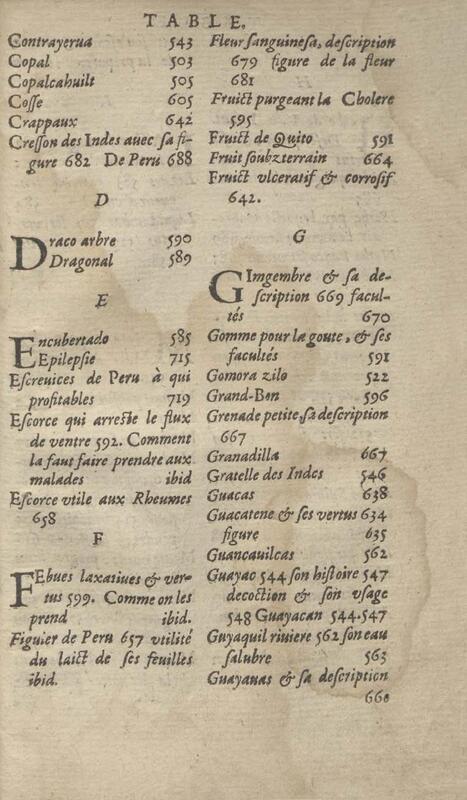 TABLE.
Contrayerua 543
Copal 503
Copalcahuilt 505
Cosse 605
Crappaux 642
Cresson des Indes auec sa fi-
gure 682 De Peru 688
D
Draco arbre 590
Dragonal 589
E
Encubertado 585
Epilepsie 715
Escreuices de Peru à qui
profitables 719
Escorce qui arreste le flux
de ventre 592. Comment
la faut faire prendre aux
malades ibid
Escorce vtile aux Rheumes
658
F
FEbues laxatiues & ver-
tus 599. Comme on les
prend ibid.
Figuier de Peru 657 vtilité
du laict de ses feuilles
ibid.
Fleur sanguinesa, description
679 figure de la fleur
681
Fruict purgeant la Cholere
595
Fruict de Quito 591
Fruit soubzterrain 664
Fruict vlceratif & corrosif
642.
G
GImgembre & sa de-
scription 669 facul-
tés 670
Gomme pour la goute, & ses
facultés 591
Gomora zilo 522
Grand-Ben 596
Grenade petite, sa description
667
Granadilla 667
Gratelle des Indes 546
Guacas 638
Guacatene & ses vertus 634
figure 635
Guancauilcas 562
Guayac 544 son histoire 547
decoction & son vsage
548 Guayacan 544.547
Guyaquil riuiere 562 son eau
salubre 563
Guayauas & sa description
660